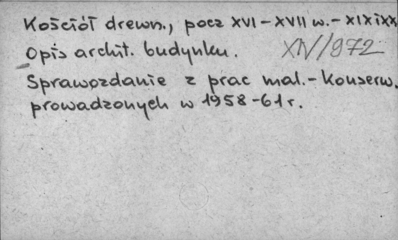 Kościół drewn., pocz XVI-XVII w.-XIXiXX
Opis archit. budynku. XIV/972
Sprawozdanie z prac mal.-konserw.
prowadzonych w 1958-61 r.